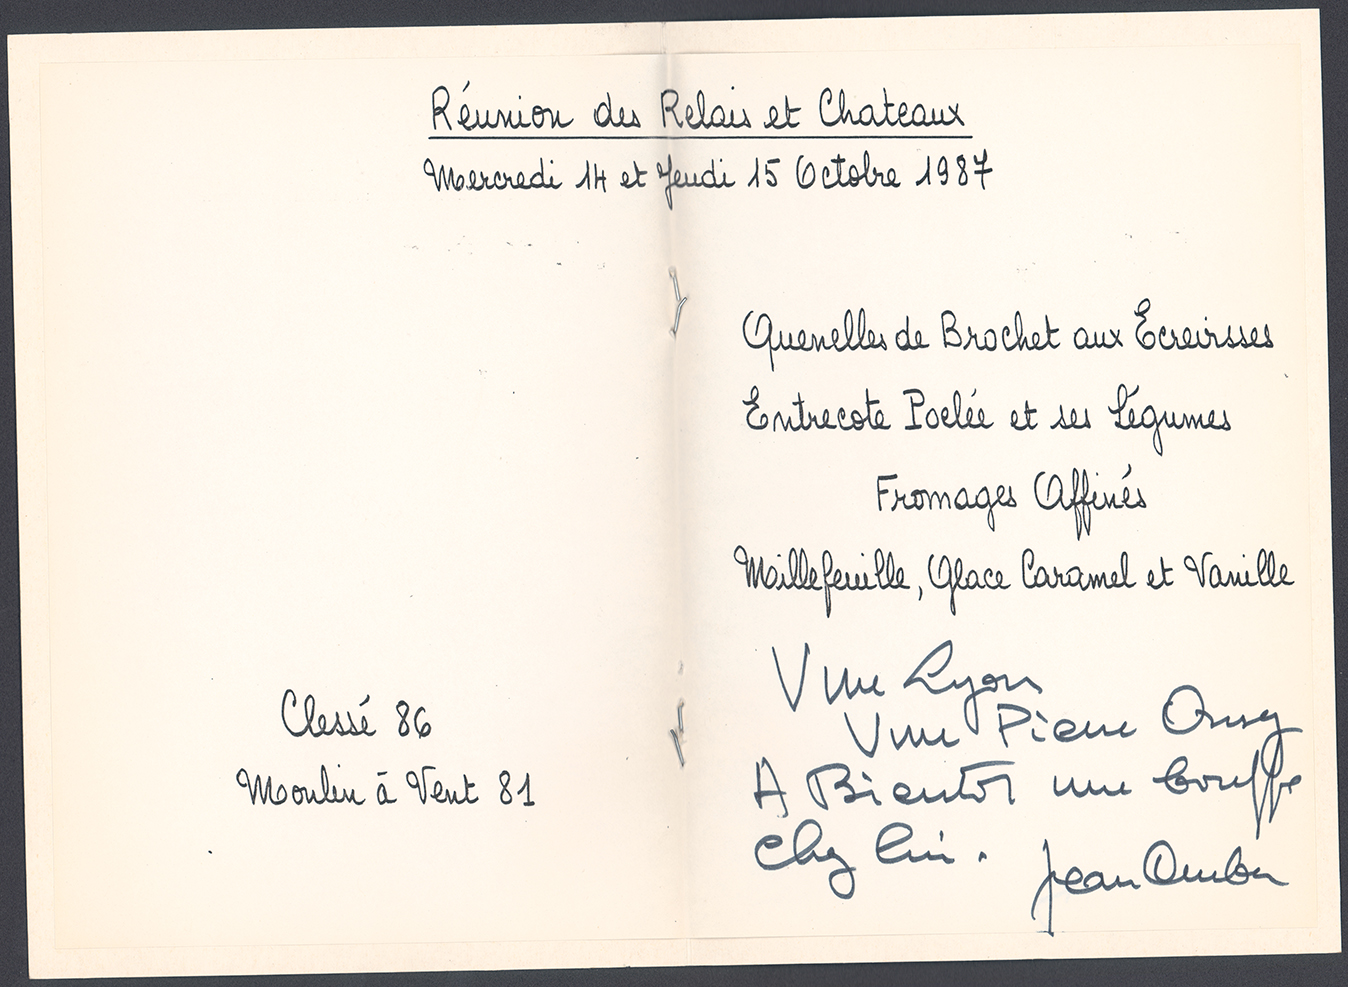 Réunion des Relais et Chateaux
Mercredi 14 et Jeudi 15 Octobre 1987
Clessé 86
Moulin à Vent 81
Quenelles de Brochet aux Ecreivsses
Entrecote Poelée et ses Légumes
Fromages Affinés
Millefeuille, Glace Caramel et Vanille
Vive Lyon
Vive Pierre Orsy
A Bientôt une bouffe
chez lui.
Jean